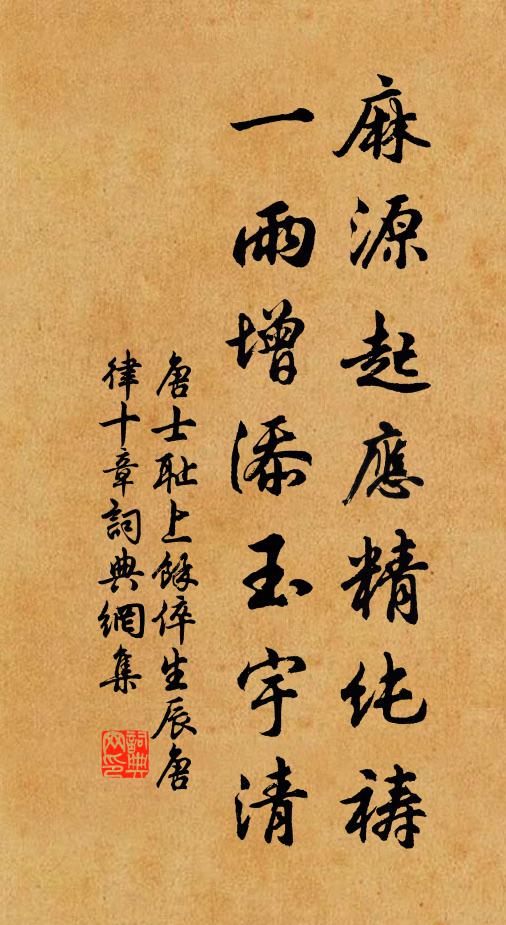 麻源起應精純禱
一雨增添玉宇清
唐士耻上餘倅生辰唐
律十章詞典網集
詞典
网印